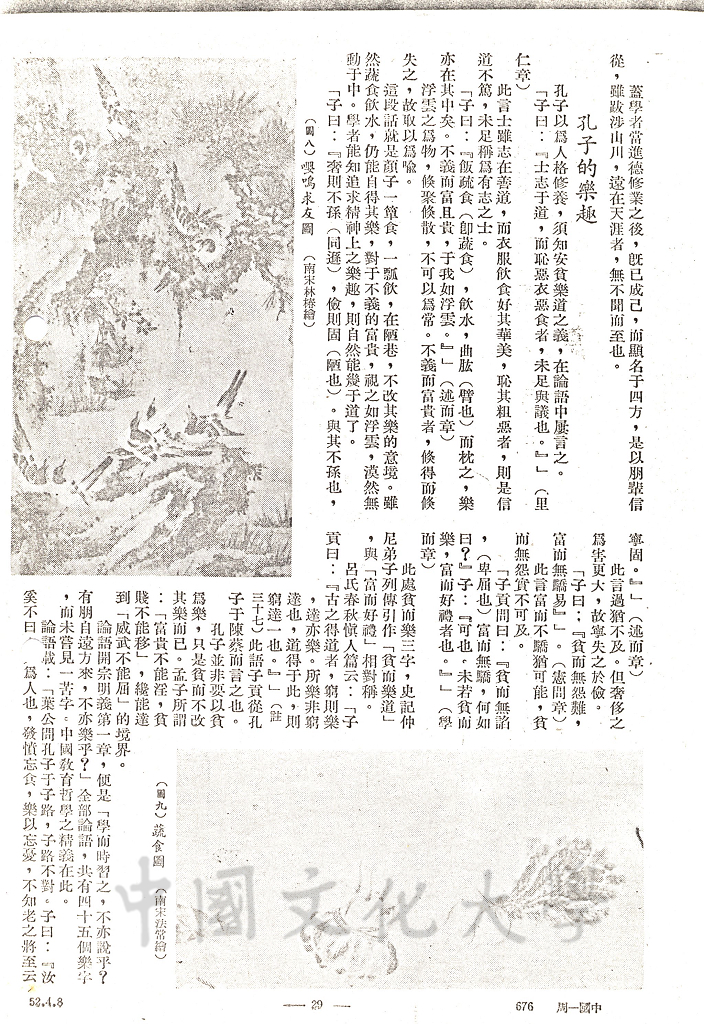 蓋學者當進德修業之後，旣已成己，而顯名于四方，是以朋輩信
從，雖跋涉山川，遠在天涯者，無不聞而至也。
孔子的樂趣
孔子以爲人格修養，須知安貧樂道之義，在論語中屢言之。
「子曰：『士志于道，而恥惡衣惡食者，未足與議也。』」（里
仁章）
此言士雖志在善道，而衣服飲食好其華美，恥其粗惡者，則是信
道不篤，未足稱爲有志之士。
「子曰：『飯疏食（卽蔬食），飲水，曲肱（臂也）而枕之，樂
亦在其中矣。不義而富且貴，于我如浮雲。』」（述而章）
浮雲之爲物，倏聚倏散，不可以爲常。不義而富貴者，倏得而倏
失之，故取以爲喩。
這段話就是顏子一簞食，一瓢飲，在陋巷，不改其樂的意境。雖
然蔬食飲水，仍能自得其樂，對于不義的富貴，視之如浮雲，漠然無
動于中。學者能知追求精神上之樂趣，則自然能幾于道了。
「子曰：『奢則不孫（同遜），儉則固（陋也）。與其不孫也，
（圖八）嚶鳴求友圖　（南宋林椿繪）
寧固。』」（述而章）
此言過猶不及。但奢侈之
爲害更大，故寧失之於儉。
「子曰：『貧而無怨難，
富而無驕易』」。（憲問章）
此言富而不驕猶可能，貧
而無怨實不可及。
「子貢問曰：『貧而無諂
，（卑屈也）富而無驕，何如
曰？』子：『可也。未若貧而
樂，富而好禮者也。』」（學
而章）
此處貧而樂三字，史記仲
尼弟子列傳引作「貧而樂道」
，與「富而好禮」相對稱。
呂氏春秋愼人篇云：「子
貢曰：『古之得道者，窮則樂
，達亦樂。所樂非窮
達也，道得于此，則
窮達一也。』」（註
三十七）此語子貢從孔
子于陳蔡而言之也。
孔子並非要以貧
爲樂，只是貧而不改
其樂而已。孟子所謂
：「富貴不能淫，貧
賤不能移」，纔能達
到「威武不能屈」的境界。
論語開宗明義第一章，便是「學而時習之，不亦說乎？
有朋自遠方來，不亦樂乎？」全部論語，共有四十五個樂字
，而未嘗見一苦字。中國敎育哲學之精義在此。
論語載：「葉公問孔子于子路，子路不對。子曰：『汝
奚不曰（　爲人也，發憤忘食，樂以忘憂，不知老之將至云
（圖九）蔬食圖　（南宋法常繪）
中國文化大學
52.4.8
— 29 —
676　周一國中